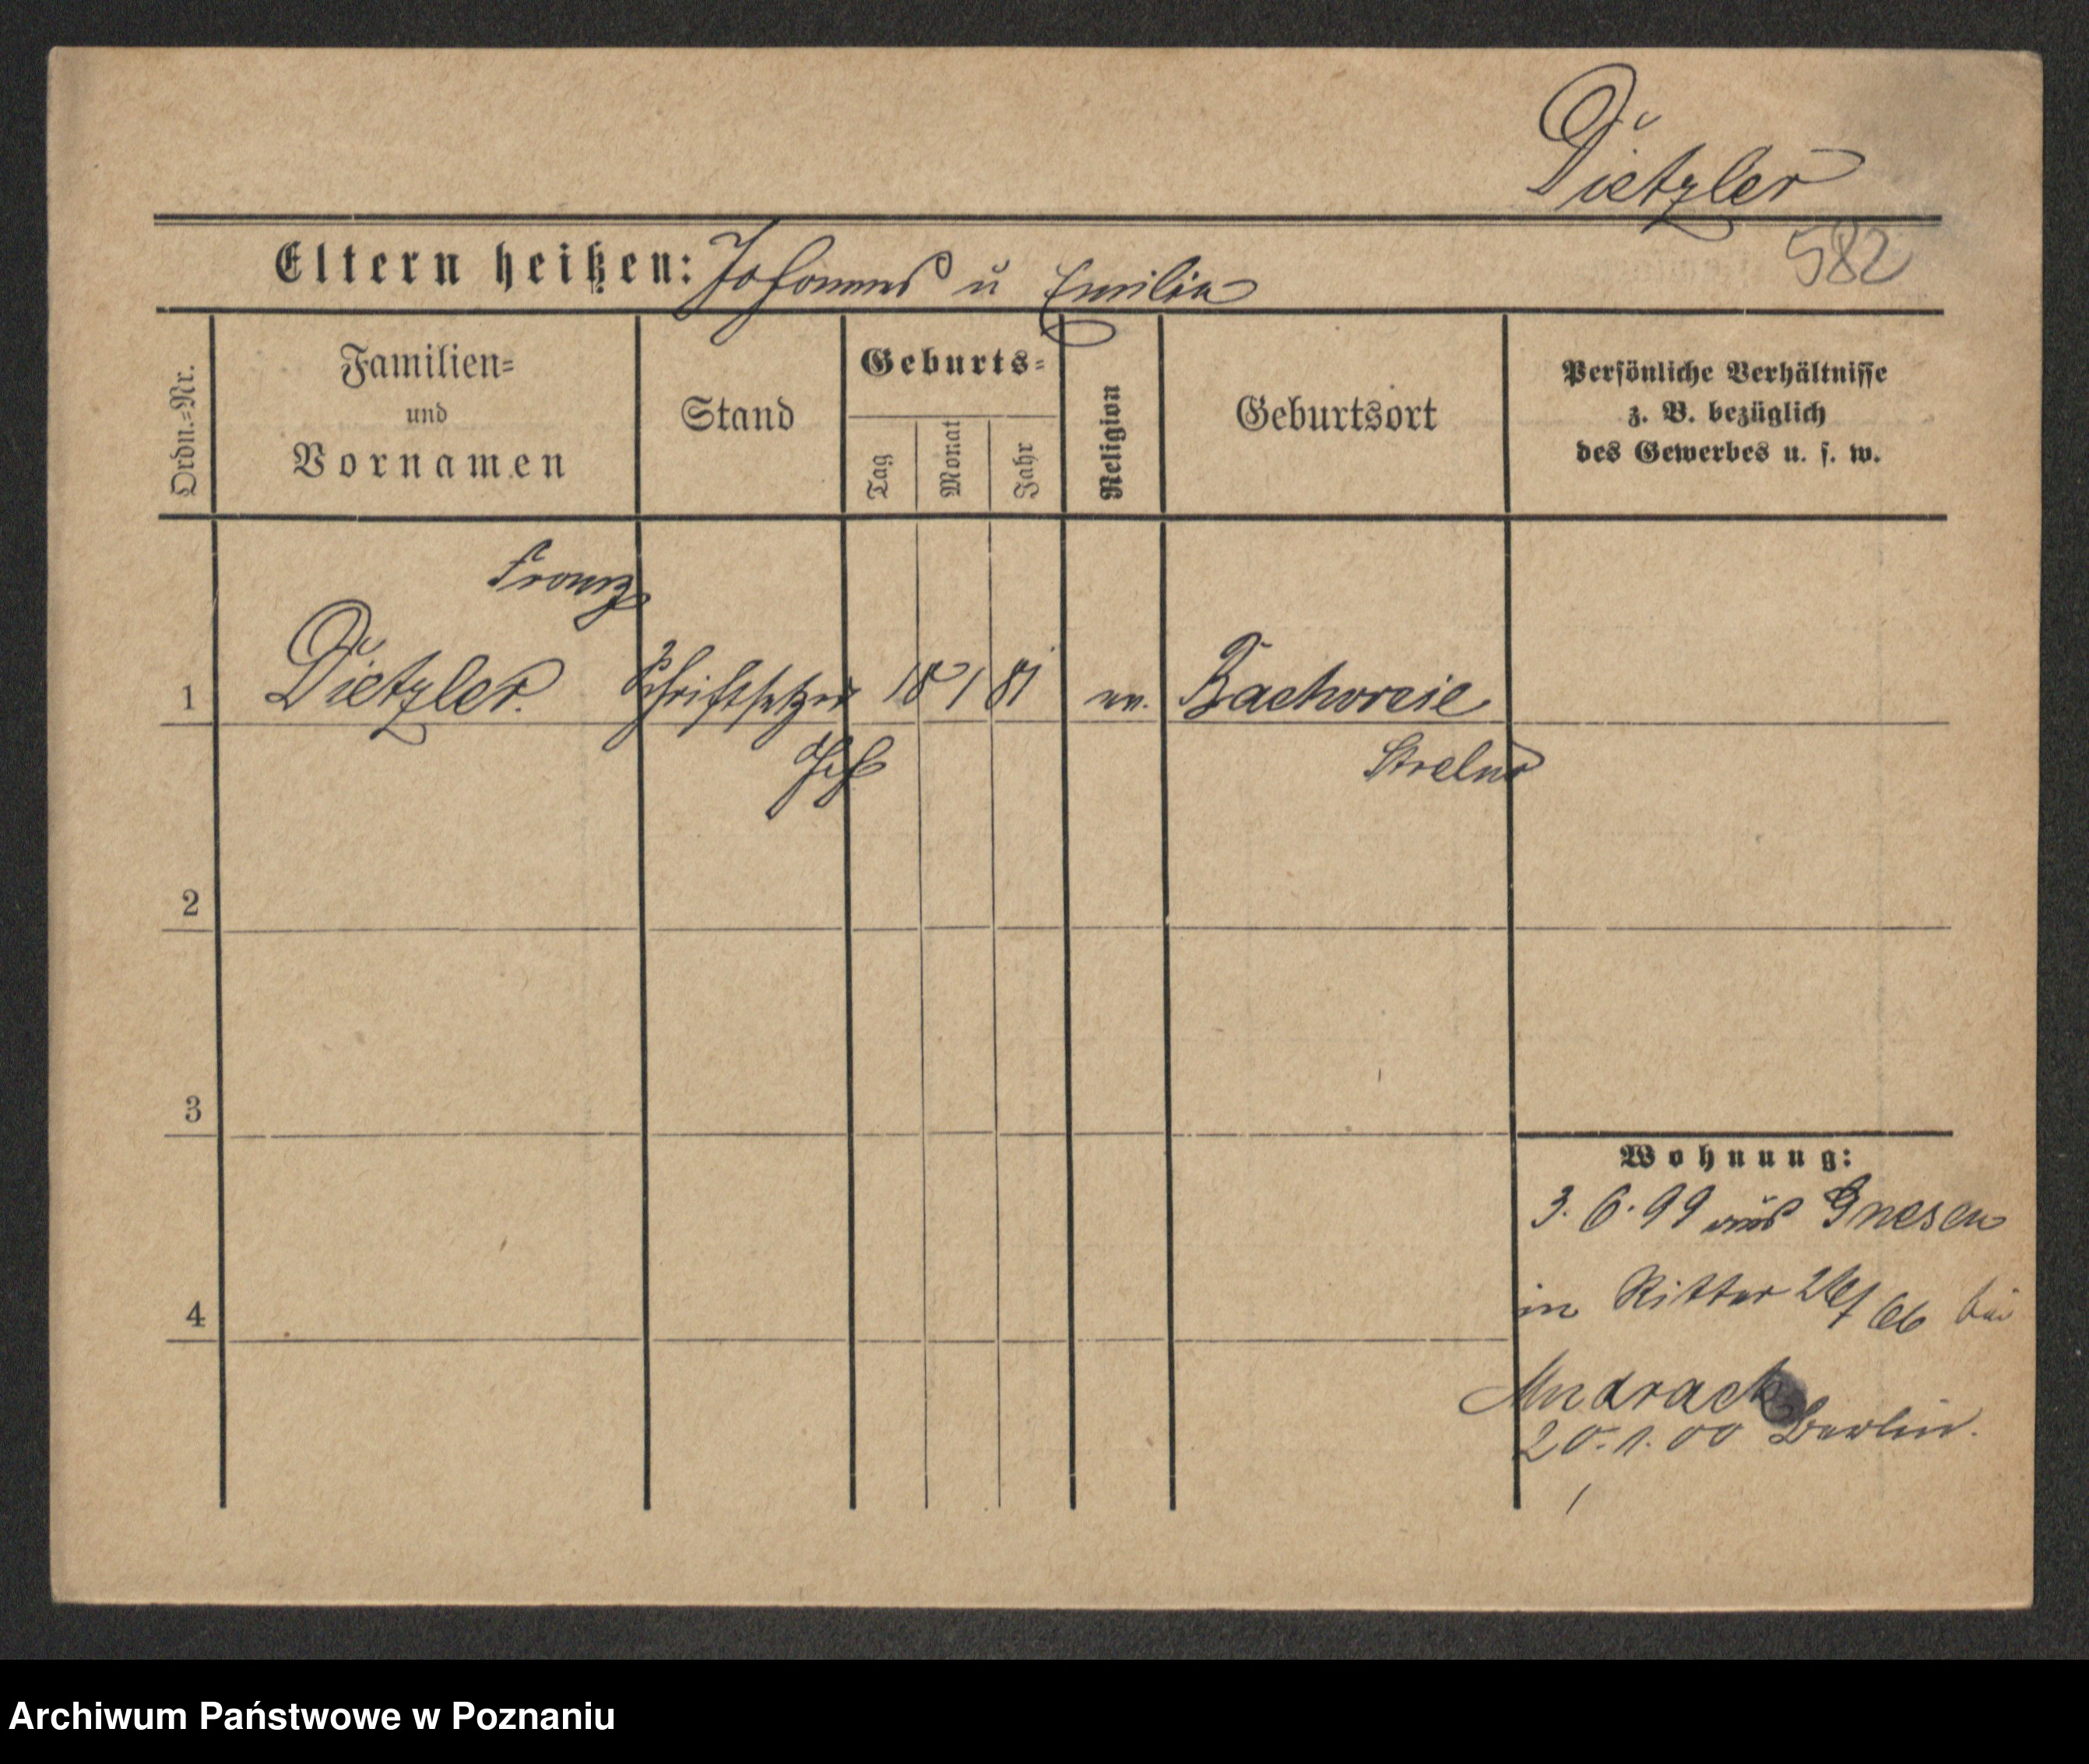 Dietzler
582
Eltern heißen: Johannes u Emilie
Ordn.=Nr.
Familien=
und
Vornamen
Stand
Geburts=
Tag
Monat
Jahr
Religion
Geburtsort
Persönliche Verhältnisse
z. B. bezüglich
des Gewerbes u. s. w.
Franz
1 Dietzler. Schriftsetzer 18 1 81 Bachorcie
Strelno
2
3
4
Wohnung:
3. 6. 99 aus Gnesen
in Ritter bei
Andrack
20. 1. 00 Berlin.
Archiwum Państwowe w Poznaniu